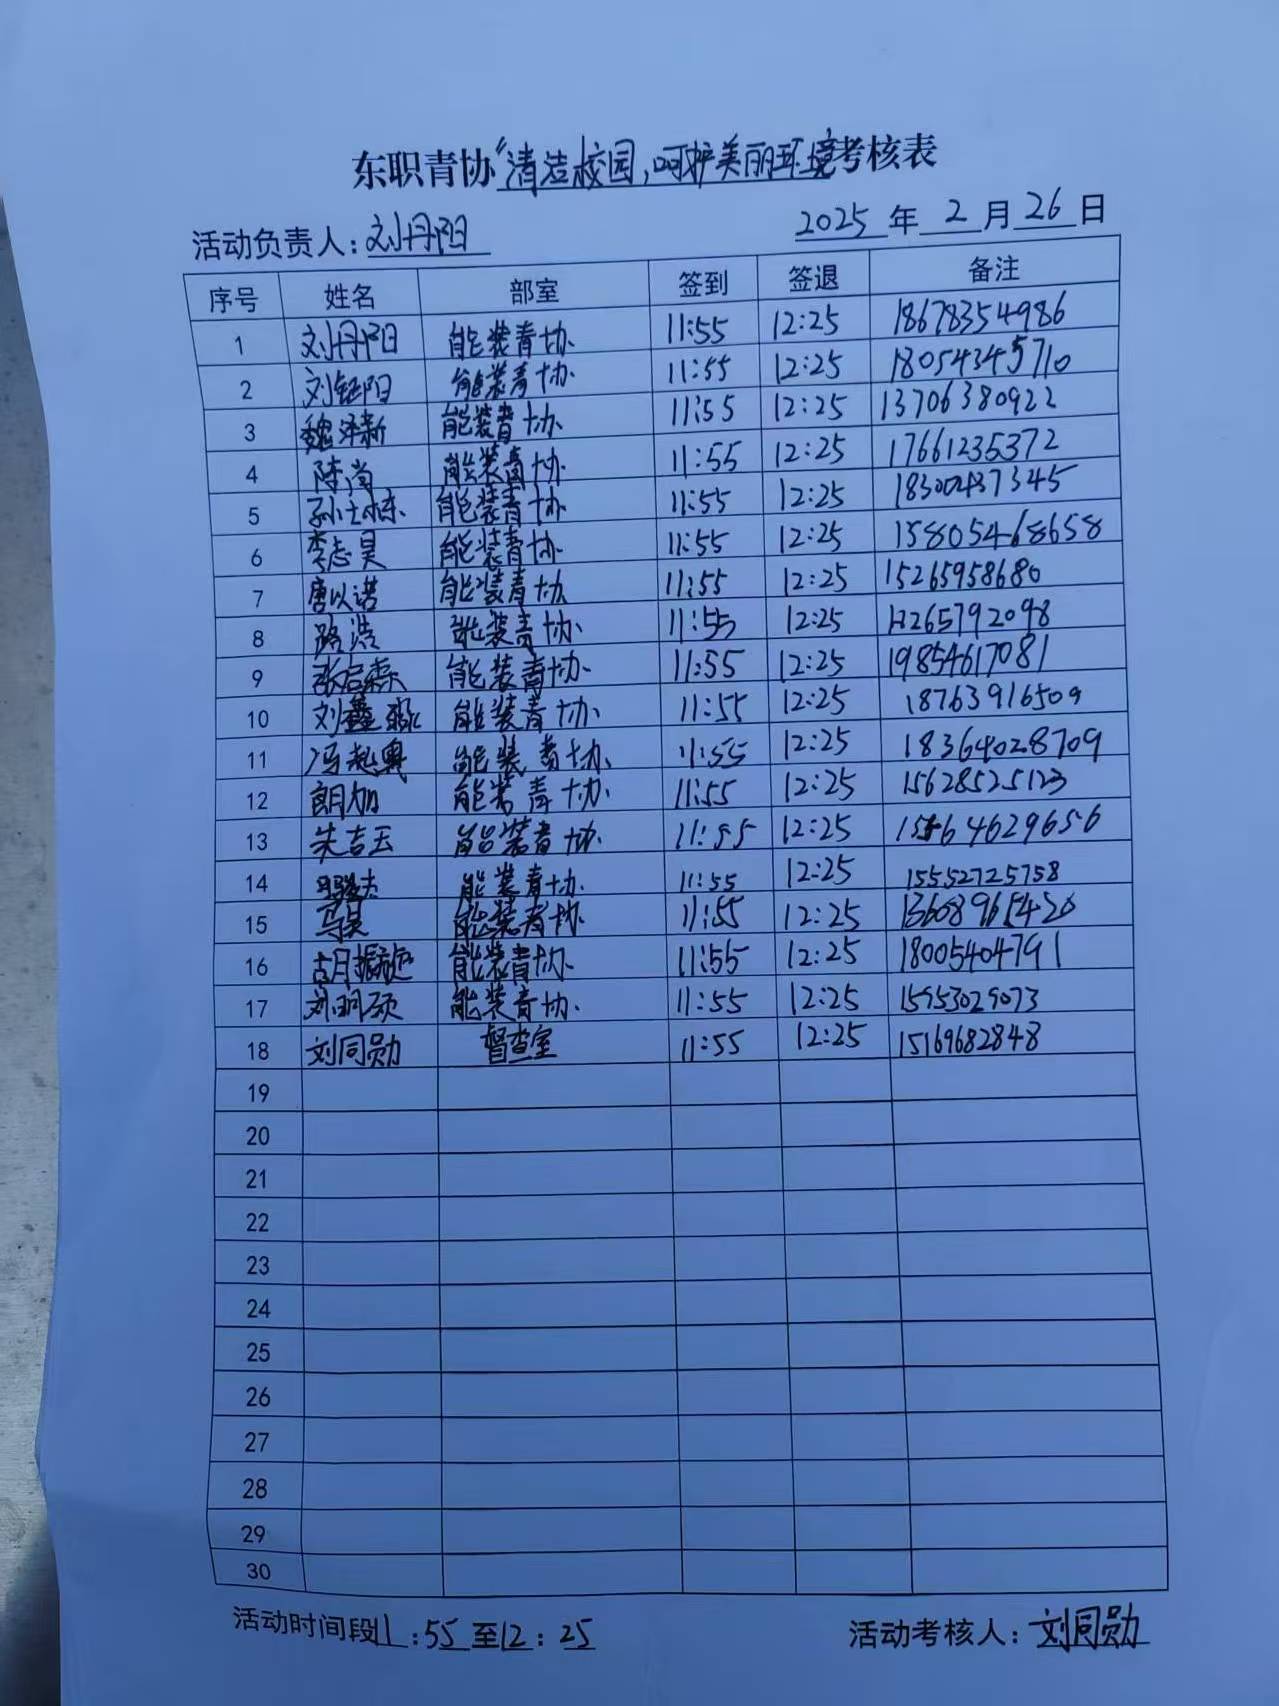 东职青协“清洁校园,呵护美丽环境考核表
活动负责人:刘丹阳 2025年2月26日
序号 姓名 部室 签到 签退 备注
1 刘丹阳 能装青协 11:55 12:25 18678354986
2 刘钰阳 能装青协 11:55 12:25 18054345710
3 魏泽新 能装青协 11:55 12:25 13706380922
4 陈尚 能装青协 11:55 12:25 17661235372
5 孙士栋 能装青协 11:55 12:25 18300437345
6 李志昊 能装青协 11:55 12:25 15805468658
7 唐以诺 能装青协 11:55 12:25 15265958680
8 路浩 能装青协 11:55 12:25
9 张启森 能装青协 11:55 12:25 19854617081
10 刘鑫淼 能装青协 11:55 12:25 18763916509
11 冯赵奥 能装青协 11:55 12:25 18364028709
12 朗加 能装青协 11:55 12:25 15628525123
13 朱吉玉 能装青协 11:55 12:25 15564629656
14 能装青协 11:55 12:25 15552725758
15 马昊 能装青协 11:55 12:25 13608965420
16 胡振旋 能装青协 11:55 12:25 18005404791
17 刘明硕 能装青协 11:55 12:25 15953029073
18 刘同勋 督查室 11:55 12:25 15169682848
19
20
21
22
23
24
25
26
27
28
29
30
活动时间段11:55至12:25 活动考核人:刘同勋